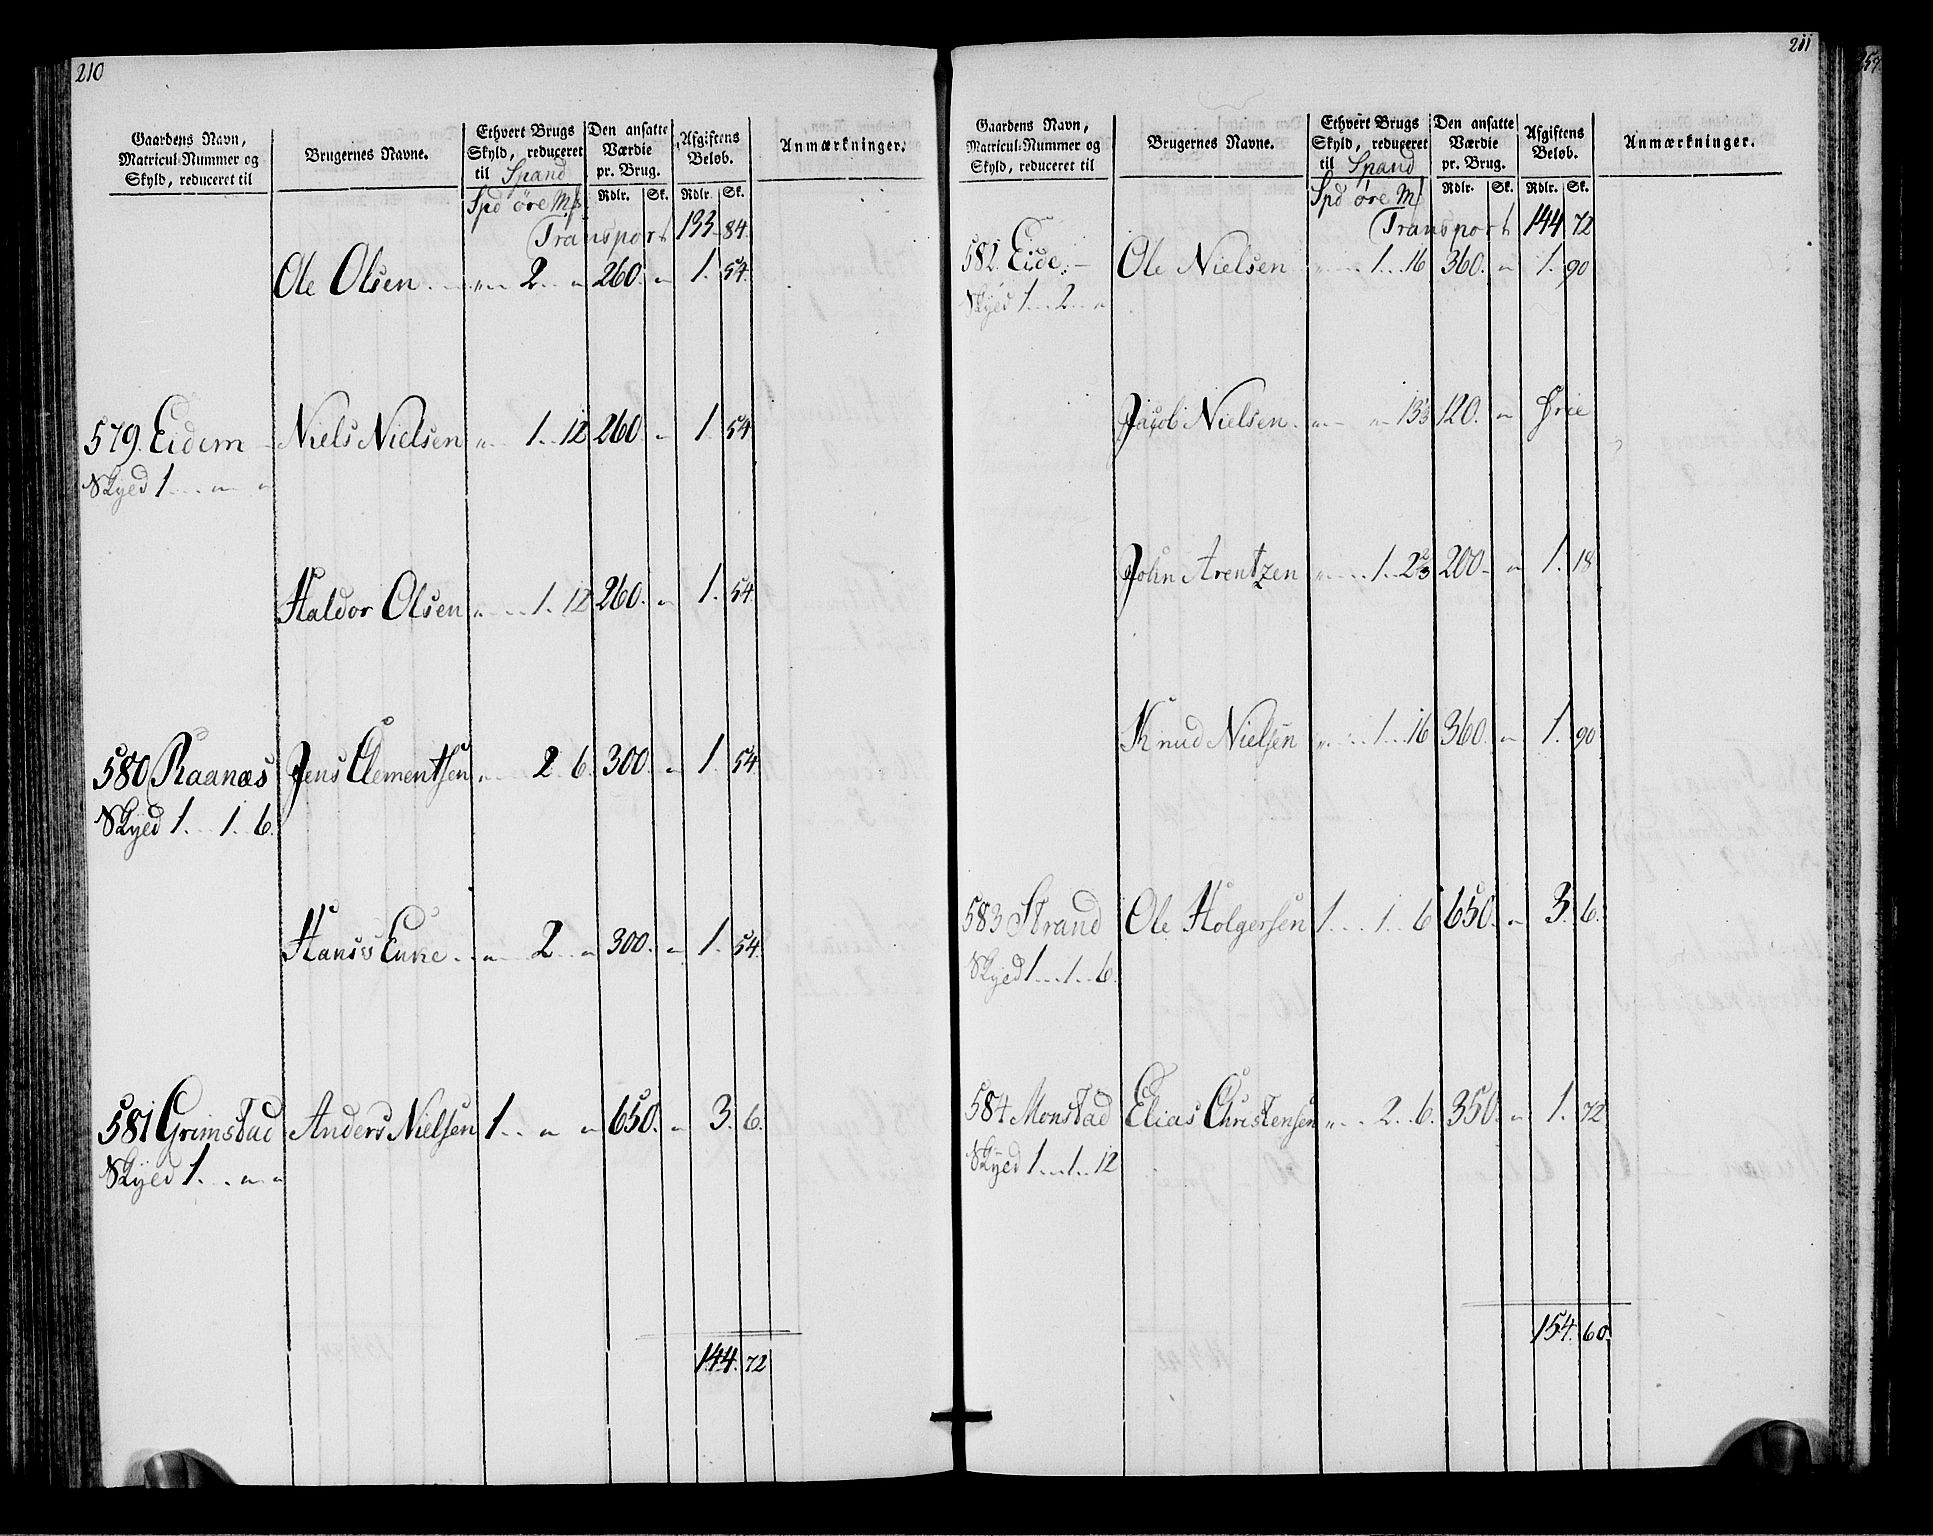 210
Gaardens Navn, Matricul-Nummer og Skyld, reduceret til | Brugernes Navne. | Ethvert Brugs Skyld, reduceret til Spand | Den ansatte Værdie pr. Brug. | Afgiftens Beløb. | Anmærkninger.
Spd øre Mk | Rdlr. Sk. | Rdlr. Sk.
Transport 133 84.
Ole Olsen „ 2 „ 260. „ 1. 54.
579. Eidem Niels Nielsen „ 1. 12 260. „ 1. 54
Skyld 1 „ „
Haldor Olsen „ 1. 12 260. „ 1. 54.
580 Raanæs Jens Clementsen „ 2 6. 300. „ 1. 54
Skyld 1. 1. 6.
Hans's Enke „ 2 „ 300. „ 1. 54.
581 Grimstad Anders Nielsen 1. „ „ 650. „ 3. 6.
Skyld 1. „ „
144. 72
211
Gaardens Navn, Matricul-Nummer og Skyld, reduceret til | Brugernes Navne. | Ethvert Brugs Skyld, reduceret til Spand | Den ansatte Værdie pr. Brug. | Afgiftens Beløb. | Anmærkninger.
Spd øre Mk | Rdlr. Sk. | Rdlr. Sk.
Transport 144 72
582. Eide. Ole Nielsen „ 1. 16 360. „ 1. 90
Skyld 1. 2. „
Jacob Nielsen. „ „ 13 120. „ frie
John Arentzen „ 1. 200. „ 1. 18
Knud Nielsen „ 1. 16 360. „ 1. 90
583 Strand Ole Holgersen 1. 1. 6 650. „ 3. 6.
Skyld 1. 1. 6.
584 Monstad Elias Christensen „ 2. 6. 350. „ 1. 72
Skyld 1. 1. 12
154. 60.